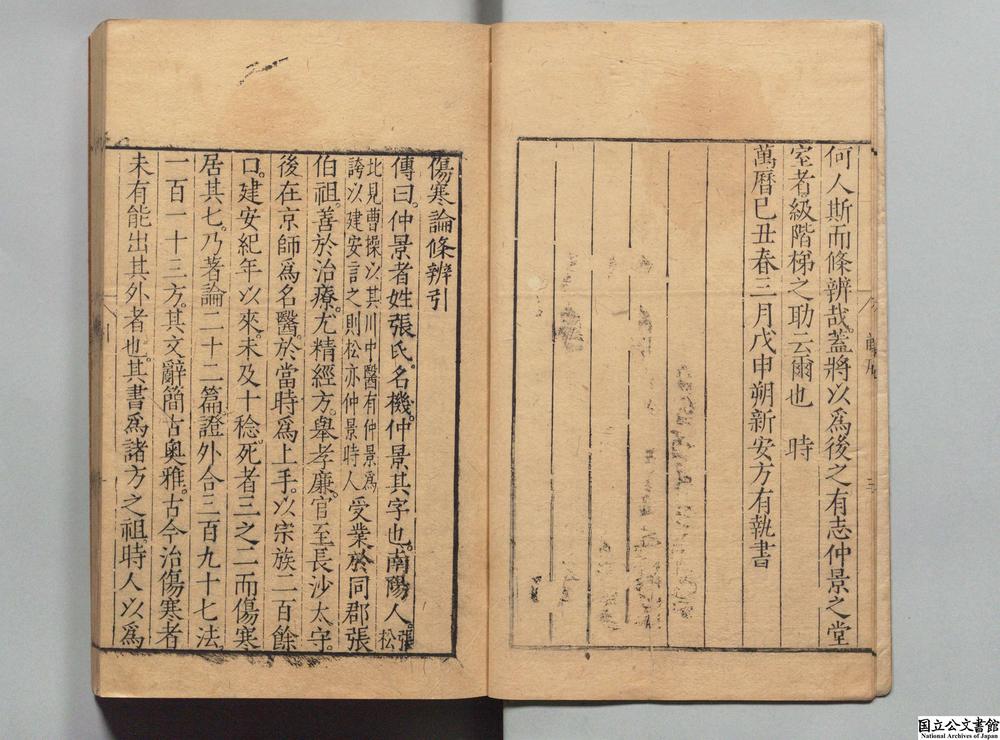 何人斯而條辨哉。蓋將以爲後之有志仲景之堂
室者。級階梯之助云爾也　時
萬曆己丑春三月戊申朔新安方有執書
傷寒論條辨引
傳曰。仲景者姓張氏。名機。仲景其字也。南陽人。張松
北見曹操以其川中醫有仲景爲
誇以建安言之則松亦仲景時人
受業於同郡張
伯祖。善於治療。尤精經方。舉孝廉。官至長沙太守。
後在京師爲名醫。於當時爲上手。以宗族二百餘
口。建安紀年以來。未及十稔死者三之二而傷寒
居其七。乃著論二十二篇。證外合三百九十七法。
一百一十三方。其文辭簡古奧雅。古今治傷寒者
未有能出其外者也。其書爲諸方之祖。時人以爲
国立公文書館
National Archives of Japan